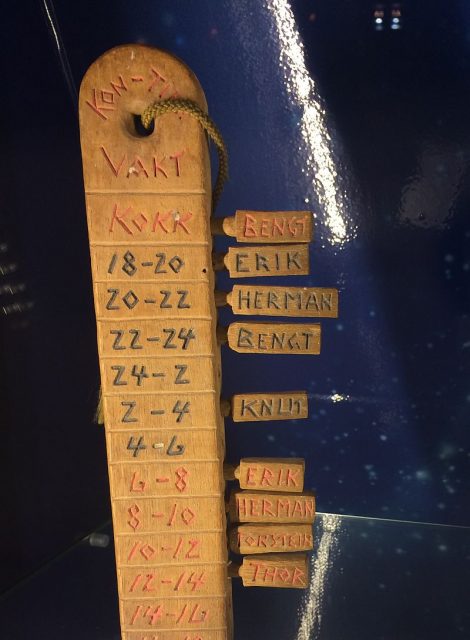 KON-TIKI
VAKT
KOKK BENGT
18-20 ERIK
20-22 HERMAN
22-24 BENGT
24-2
2-4 KNUT
4-6
6-8 ERIK
8-10 HERMAN
10-12 TORSTEIN
12-14 THOR
14-16